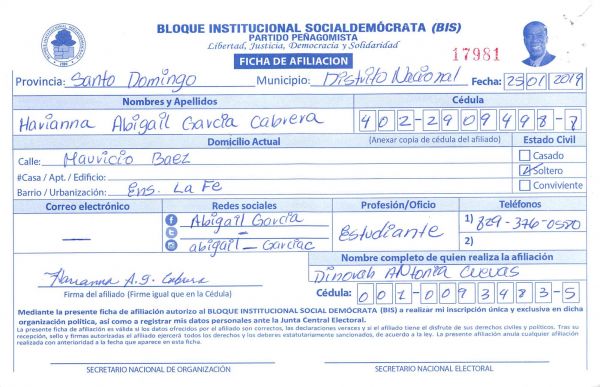 BLOQUE INSTITUCIONAL SOCIALDEMÓCRATA (BIS)
PARTIDO PEÑAGOMISTA
Libertad, Justicia, Democracia y Solidaridad
FICHA DE AFILIACION
17981
Provincia: Santo Domingo Municipio: Distrito Nacional Fecha: 25/01/2019
Nombres y Apellidos Cédula
Harianna Abigail Garcia Cabrera 402-2909498-7
Domicilio Actual (Anexar copia de cédula del afiliado) Estado Civil
Calle: Mauricio Baez Casado
#Casa / Apt. / Edificio: Soltero
Barrio / Urbanización: Ens. La Fe Conviviente
Correo electrónico Redes sociales Profesión/Oficio Teléfonos
— Abigail Garcia Estudiante 1) 829-376-0550
abigail_Garciac 2)
Nombre completo de quien realiza la afiliación
Dinorah Antonia Cuevas
Firma del afiliado (Firme igual que en la Cédula) Cédula: 001-0093483-5
Mediante la presente ficha de afiliación autorizo al BLOQUE INSTITUCIONAL SOCIAL DEMÓCRATA (BIS) a realizar mi inscripción única y exclusiva en dicha
organización política, así como a registrar mis datos personales ante la Junta Central Electoral.
La presente ficha de afiliación es válida si los datos ofrecidos por el afiliado son correctos, las declaraciones veraces y si el afiliado tiene el disfrute de sus derechos civiles y políticos. Tras su
recepción, sello y firmas autorizadas el afiliado ejercerá todos los derechos y los deberes estatutariamente sancionados, de acuerdo a la ley. La presente afiliación anula cualquier afiliación
realizada con anterioridad a la fecha que aparece en esta ficha.
SECRETARIO NACIONAL DE ORGANIZACIÓN SECRETARIO NACIONAL ELECTORAL